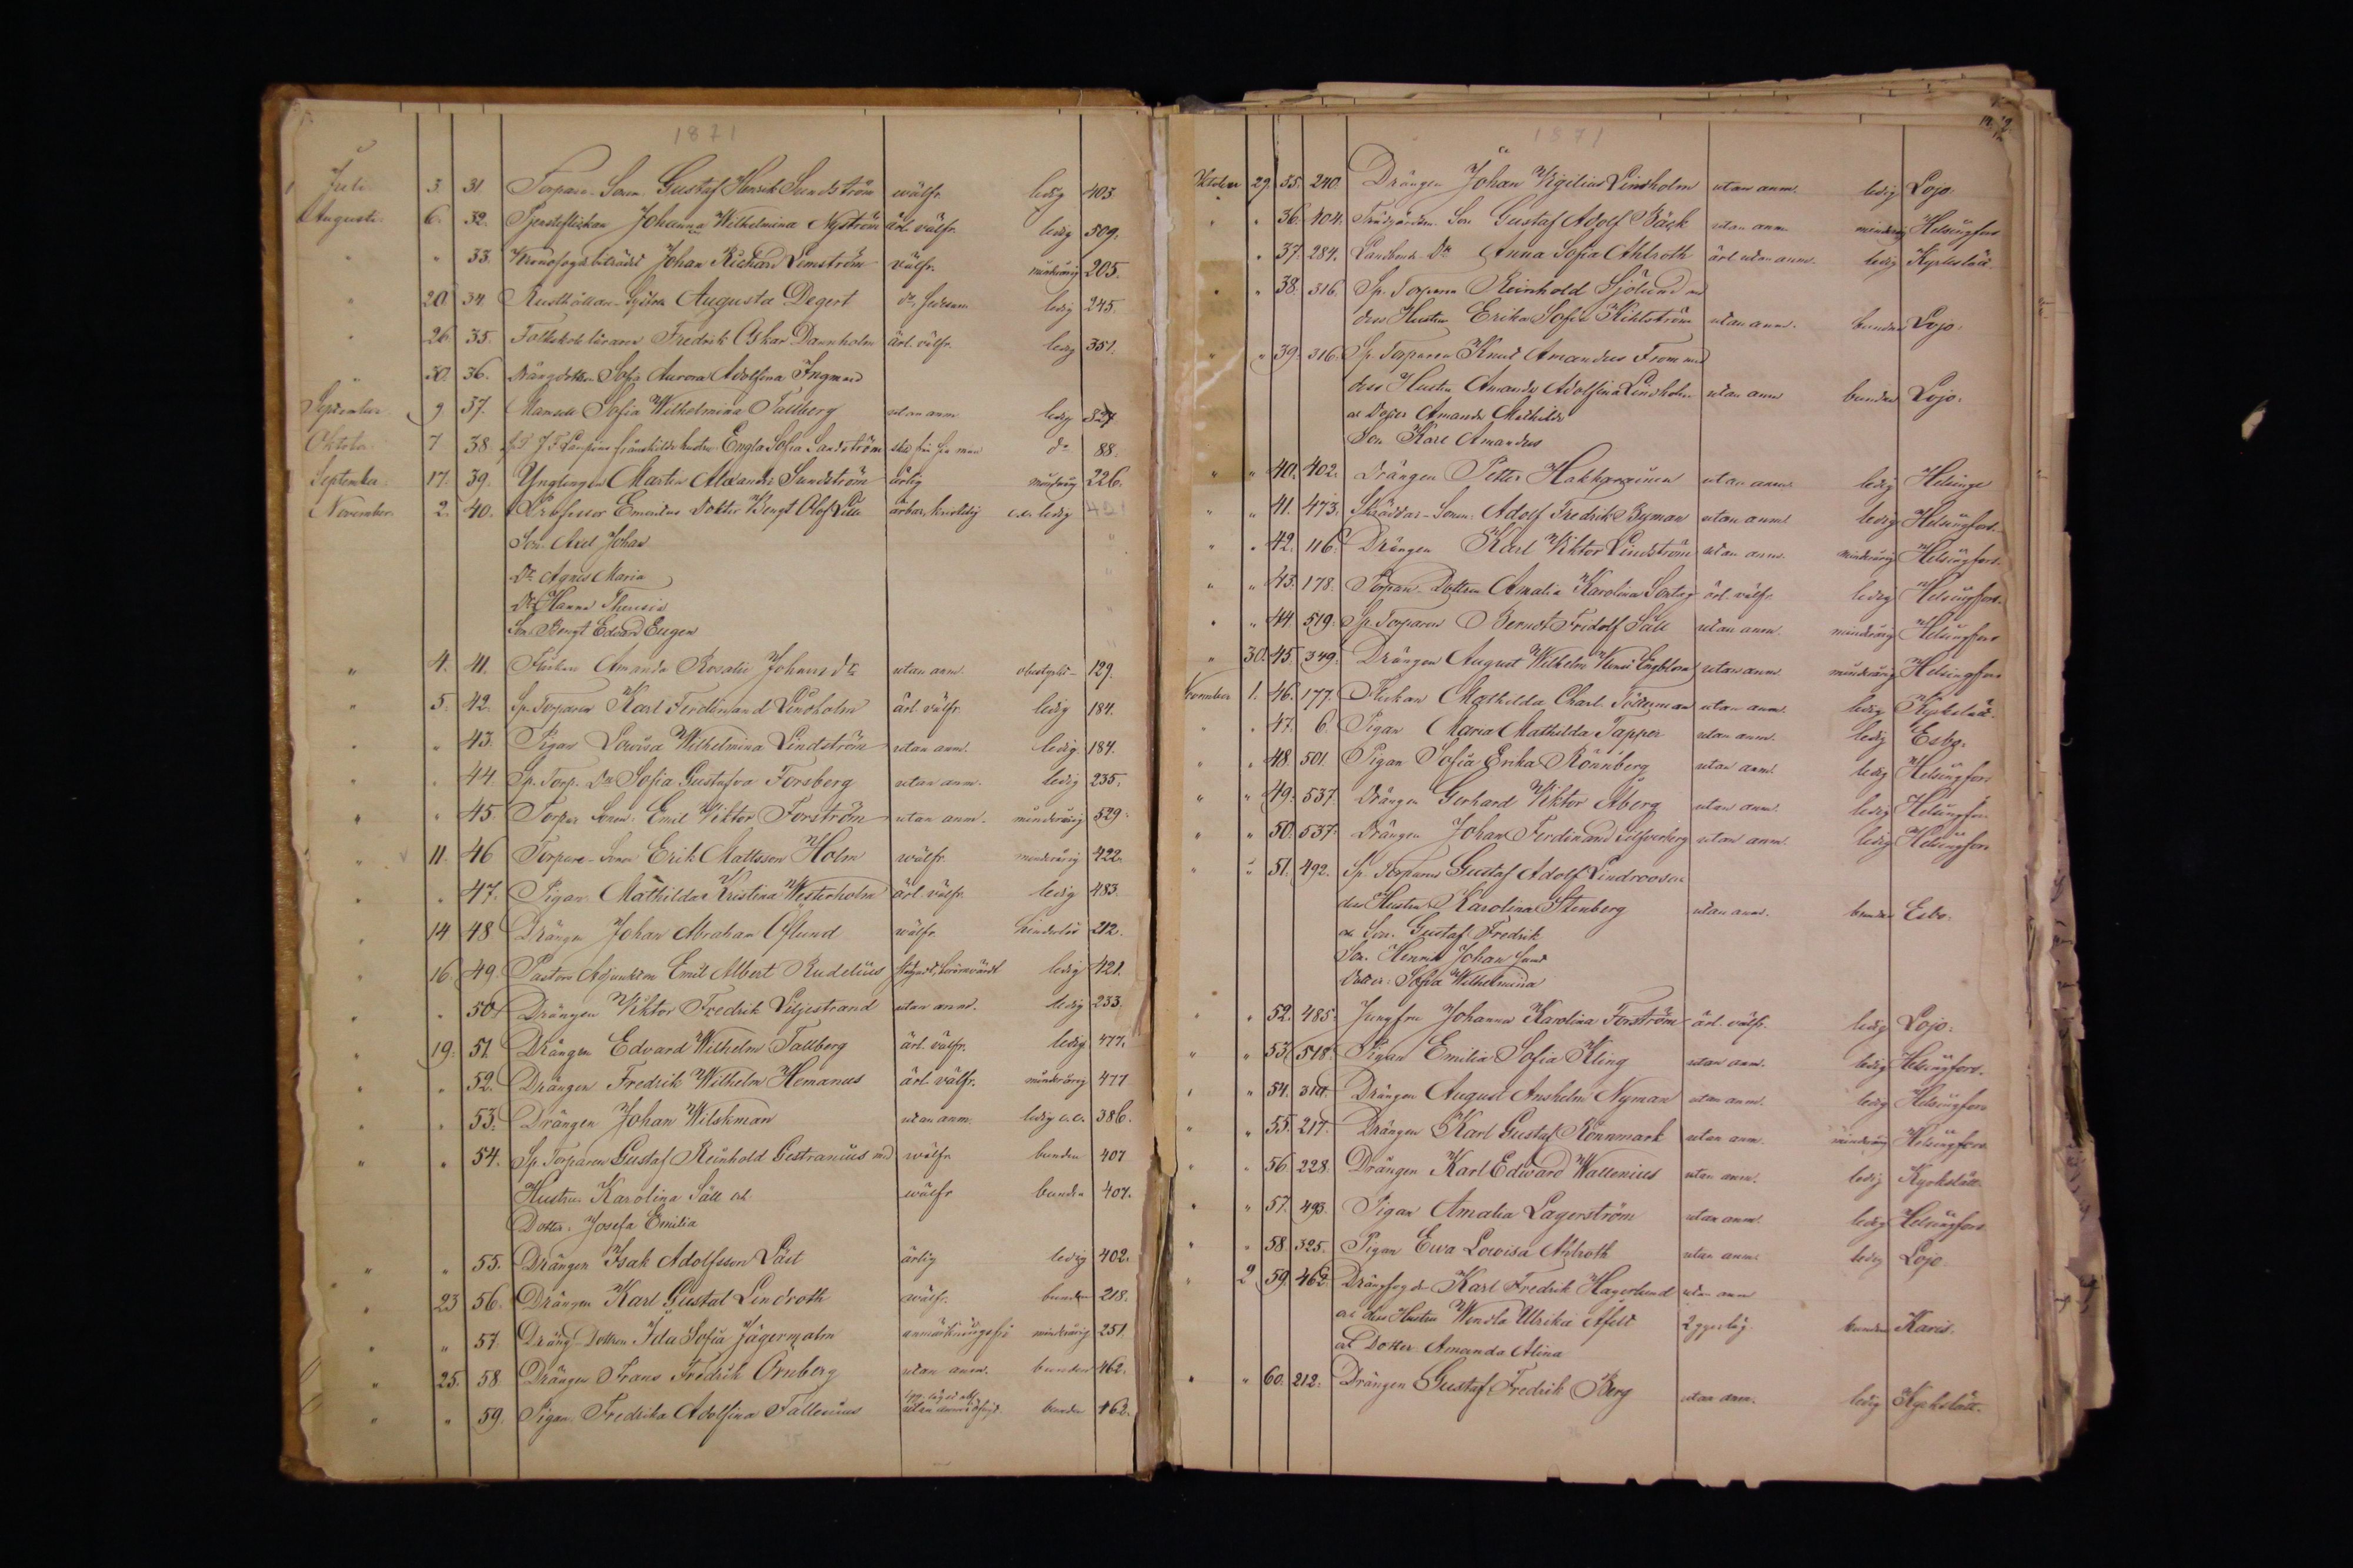 1871
Juli 3. 31. Torpare Sonen Gustaf Henrik Sundström wälfr. ledig 403.
Augusti 6. 32. Tjensteflickan Johanna Wilhelmina Nyström ärl. välfr. ledig 509.
" " 33. Kronofogdebiträdet Johan Rickard Lemström välfr. minderårig 205.
" 20. 34. Rusthållar- Augusta Degert ledig 245.
" 26. 35. Folkskoleläraren Fredrik Oskar Dannholm ärl. välfr. ledig 351.
" 30. 36. Drängdottren Sofia Aurora Adolfina Ingman
September 9. 37. Mamsell Sofia Wilhelmina Tallberg utan anm. ledig 527.
Oktober 7. 38. frånskilda hustru Engla Sofia Sandström do 88.
September 17. 39. Ynglingen Martin Alexander Sundström ärlig minderårig 226.
November 2. 40. Professor Emeritus Doktor Bengt Olof Lille ärbar, kristlig e.e. ledig
Son: Axel Johan "
Dr. Agnes Maria "
Dr. Hanna Theresia "
Son Bengt Edvard Eugen "
" 4. 41. Flickan Amanda Rosalie Johansdr utan anm. 129.
" 5. 42. Sp. Torparen Karl Ferdinand Lindholm ärl. välfr. ledig 184.
" " 43. Pigan Lowisa Wilhelmina Lindström utan anm. ledig 184.
" " 44. Sp. Torp. Dr Sofia Gustafva Forsberg utan anm. ledig 235.
" " 45. Torpar Sonen Emil Viktor Forström utan anm. minderårig 529.
" 11. 46 Torpare-Sonen Erik Mattsson Holm wälfr. minderårig 422.
" " 47. Pigan Mathilda Kristina Westerholm ärl. välfr. ledig 483.
" 14 48 Drängen Johan Abraham Öflund wälfr. hinderlös 212.
" 16. 49. Pastors Adjunkten Emil Albert Rudelius ledig 421.
" " 50. Drängen Viktor Fredrik Liljestrand utan anm. ledig 233.
" 19. 51. Drängen Edvard Wilhelm Tallberg ärl. välfr. ledig 477.
" " 52. Drängen Fredrik Wilhelm Homanus ärl. välfr. minderårig 477
" " 53. Drängen Johan Wilskman utan anm. ledig e.e. 386.
" " 54. Sp. Torparen Gustaf Reinhold Gestranius med wälfr. bunden 407
Hustru Karolina Säll o. wälfr. bunden 407.
Dotter: Josefa Emilia
" " 55. Drängen Isak Adolfsson Läst ärlig ledig 402.
" 23 56. Drängen Karl Gustaf Lindroth wälfr. bunden 218.
" " 57. Dräng-Dottren Ida Sofia Jägermalm anmärkningsfri minderårig 251.
" 25. 58. Drängen Frans Fredrik Örnberg utan anm. bunden 462.
" " 59. Pigan Fredrika Adolfina Tallenius utan bunden 462.
1871
Oktober 29. 35. 240. Drängen Johan Vigilius Lindholm utan anm. ledig Lojo.
" " 36. 404. Trädgårdsm. Son Gustaf Adolf Bäck utan anm. minderårig Helsingfors
" 37. 284. Landbonde Dr Anna Sofia Ahlroth ärl utan anm. ledig Kyrkslätt.
" " 38. 316. Sp. Torparen Reinhold Sjölund m
dess Hustru Erika Sofia Kihlström utan anm. bunden Lojo.
" " 39. 316. Sp. Torparen Knut Amandus From med
dess Hustru Amanda Adolfina Lindholm utan anm bunden Lojo.
o Dotter Amanda Mathilda
Son Karl Amandus
" " 40. 402. Drängen Petter Hakkarainen utan anm. ledig Helsinge
" " 41. 473. Skräddar-Sonen Adolf Fredrik Byman utan anm. ledig Helsingfors.
" " 42. 116. Drängen Karl Viktor Lindström utan anm. minderårig Helsingfors.
" " 43. 178. Torpare Dottren Amalia Karolina Sontag ärl. välfr. ledig Helsingfors.
" " 44. 519. Sp. Torparen Berndt Fridolf Säll utan anm. minderårig Helsingfors
" 30. 45. 349. Drängen August Wilhelm Engblom utan anm. minderårig Helsingfors
November 1. 46. 177 Flickan Mathilda Charl. Söderman utan anm. ledig Kyrkslätt.
" " 47. 6. Pigan Maria Mathilda Tapper utan anm. ledig Esbo.
" " 48. 501. Pigan Sofia Erika Rönnberg utan anm. ledig Helsingfors
" " 49. 537. Drängen Gerhard Viktor Åberg utan anm. ledig Helsingfors
" " 50. 537. Drängen Johan Ferdinand Silfverberg utan anm. ledig Helsingfors
" " 51. 492. Sp. Torparen Gustaf Adolf Lindroos m
dess Hustru Karolina Stenberg utan anm. bunden Esbo.
o. Son: Gustaf Fredrik
Son: Henrik Johan samt
Dotter: Sofia Wilhelmina
" " 52. 485. Jungfru Johanna Karolina Forström ärl. välfr. ledig Lojo.
" " 53. 518. Pigan Emilia Sofia Kling utan anm. ledig Helsingfors.
" " 54. 310. Drängen August Anshelm Nyman utan anm. ledig Helsingfors
" " 55. 217. Drängen Karl Gustaf Rönnmark utan anm. minderårig Helsingfors
" " 56. 228. Drängen Karl Edward Wallenius utan anm. ledig Kyrkslätt.
" " 57. 493. Pigan Amalia Lagerström utan anm. ledig Helsingfors
" " 58. 325. Pigan Ewa Lowisa Nylroth utan anm. ledig Lojo.
" 2 59. 462. Drängfogden Karl Fredrik Hagerlund utan anm
o. dess Hustru Wendla Ulrika Afelt 2 ggr läg. bunden Karis.
o Dotter Amanda Alina
" " 60. 212. Drängen Gustaf Fredrik Berg utan anm. ledig Kyrkslätt.